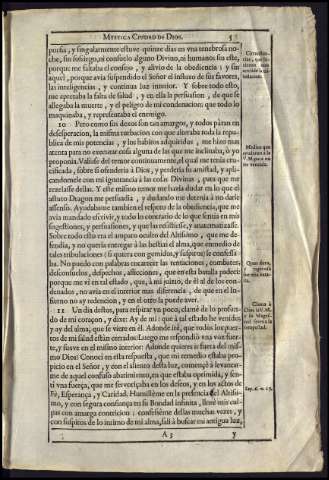 MYSTICA CIUDAD DE DIOS. 5
porfia, y singularmente estuve quinze dias en vna tenebrosa no-
che, sin sosiego, ni consuelo alguno Divino, ni humano: sin este,
porque me faltaba el consejo, y alivio de la obediencia: y sin
aquel, porque avia suspendido el Señor el influxo de sus favores,
las inteligencias, y continua luz interior. Y sobre todo esto,
me apretaba la falta de salud, y en ella la persuasion, de que se
allegaba la muerte, y el peligro de mi condenacion: que todo lo
maquinaba, y representaba el enemigo.
10 Pero como sus dexos son tan amargos, y todos paran en
desesperacion, la misma turbacion con que alteraba toda la repu-
blica de mis potencias, y los habitos adquiridos, me hizo mas
atenta para no executar cosa alguna de las que me inclinaba, ò yo
proponia. Valiase del temor continuamente, el qual me tenia cruci-
ficada, sobre si ofenderia à Dios, y perderia su amistad, y apli-
candome con mi ignorancia à las cosas Divinas, para que me
rezelasse dellas. Y este mismo temor me hazia dudar en lo que el
astuto Dragon me persuadia, y dudando me detenia à no darle
assenso. Ayudabame tambien el respeto de la obediencia, que me
avia mandado escrivir, y todo lo contrario de lo que sentia en mis
sugestiones, y persuasiones, y que las resistiesse, y anatematizasse.
Sobre todo esto era el amparo oculto del Altissimo, que me de-
fendia, y no queria entregar à las bestias el alma, que en medio de
tales tribulaciones (si quiera con gemidos, y suspiros) le confessa-
ba. No puedo con palabras encarecer las tentaciones, combates,
desconsuelos, despechos, aflicciones, que en esta batalla padecì:
porque me vì en tal estado, que, à mi juizio, de èl al de los con-
denados, no avia en el interior mas diferencia, de que en el In-
fierno no ay redencion, y en el otro la puede aver.
11 Un dia destos, para respirar vn poco, clamè de lo profun-
do de mi coraçon, y dixe: Ay de mì: que à tal estado he venido,
y ay del alma, que se viere en èl. Adonde irè, que todos los puer-
tos de mi salud estàn cerrados: Luego me respondiò vna voz fuer-
te, y suave en el mismo interior: Adonde quieres ir fuera del mis-
mo Dios? Conocì en esta respuesta, que mi remedio estaba pro-
picio en el Señor, y con el aliento desta luz, comencè à levantar-
me de aquel confuso abatimiento, en que estaba oprimida, y sen-
tì vna fuerça, que me fervorizaba en los deseos, y en los actos de
Fè, Esperança, y Caridad. Humillème en la presencia del Altissi-
mo, y con segura confiança en su Bondad infinita, llorè mis cul-
pas con amarga contricion: confessème dellas muchas vezes, y
con suspiros de lo intimo de mi alma, salì à buscar mi antigua luz,
A 3 y
Medios que
V. M. para no
Clama à
Dios la V. M.
Sap. 6. v. 13.